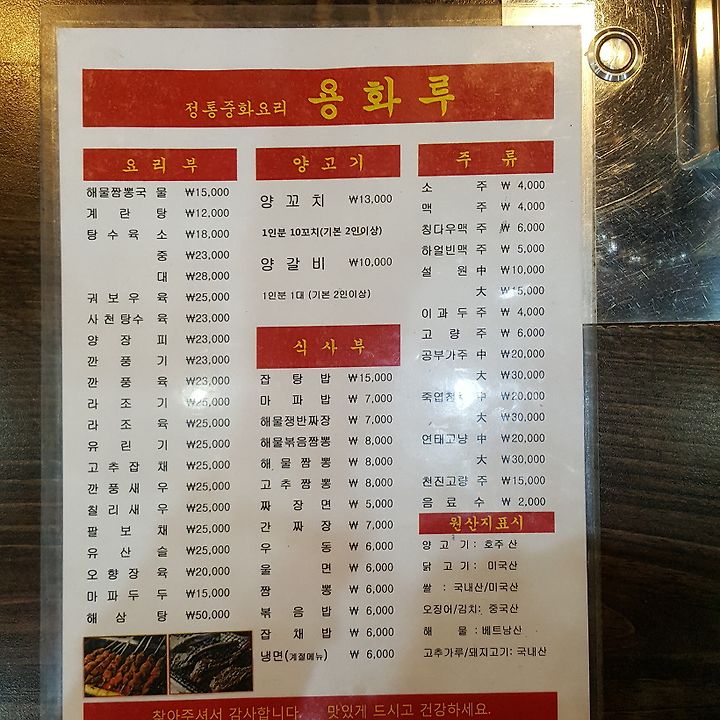 정통중화요리 용화루
요리부
해물짬뽕국물 ₩15,000
계란탕 ₩12,000
탕수육 소 ₩18,000
중 ₩23,000
대 ₩28,000
궈보우육 ₩25,000
사천탕수육 ₩23,000
양장피 ₩23,000
깐풍기 ₩23,000
깐풍육 ₩23,000
라조기 ₩25,000
라조육 ₩25,000
유린기 ₩25,000
고추잡채 ₩25,000
깐풍새우 ₩25,000
칠리새우 ₩25,000
팔보채 ₩25,000
유산슬 ₩25,000
오향장육 ₩20,000
마파두두 ₩15,000
해삼탕 ₩50,000
양고기
양꼬치 ₩13,000
1인분 10꼬치(기본 2인이상)
양갈비 ₩10,000
1인분 1대 (기본 2인이상)
식사부
잡탕밥 ₩15,000
마파밥 ₩ 7,000
해물쟁반짜장 ₩ 7,000
해물볶음짬뽕 ₩ 8,000
해물짬뽕 ₩ 8,000
고추짬뽕 ₩ 8,000
짜장면 ₩ 5,000
간짜장 ₩ 7,000
우동 ₩ 6,000
울면 ₩ 6,000
짬뽕 ₩ 6,000
볶음밥 ₩ 6,000
잡채밥 ₩ 6,000
냉면(계절메뉴) ₩ 6,000
주류
소주 ₩ 4,000
맥주 ₩ 4,000
칭다우맥주 ₩ 6,000
하얼빈맥주 ₩ 5,000
설원 中 ₩10,000
大 ₩15,000
이과두주 ₩ 4,000
고량주 ₩ 6,000
공부가주 中 ₩20,000
大 ₩30,000
죽엽청 ₩20,000
大 ₩30,000
연태고냥 中 ₩20,000
大 ₩30,000
천진고량주 ₩15,000
음료수 ₩ 2,000
원산지표시
양고기 : 호주산
닭고기 : 미국산
쌀 : 국내산/미국산
오징어/김치: 중국산
해물 : 베트남산
고추가루/돼지고기: 국내산
찾아주셔서 감사합니다. 맛있게 드시고 건강하세요.